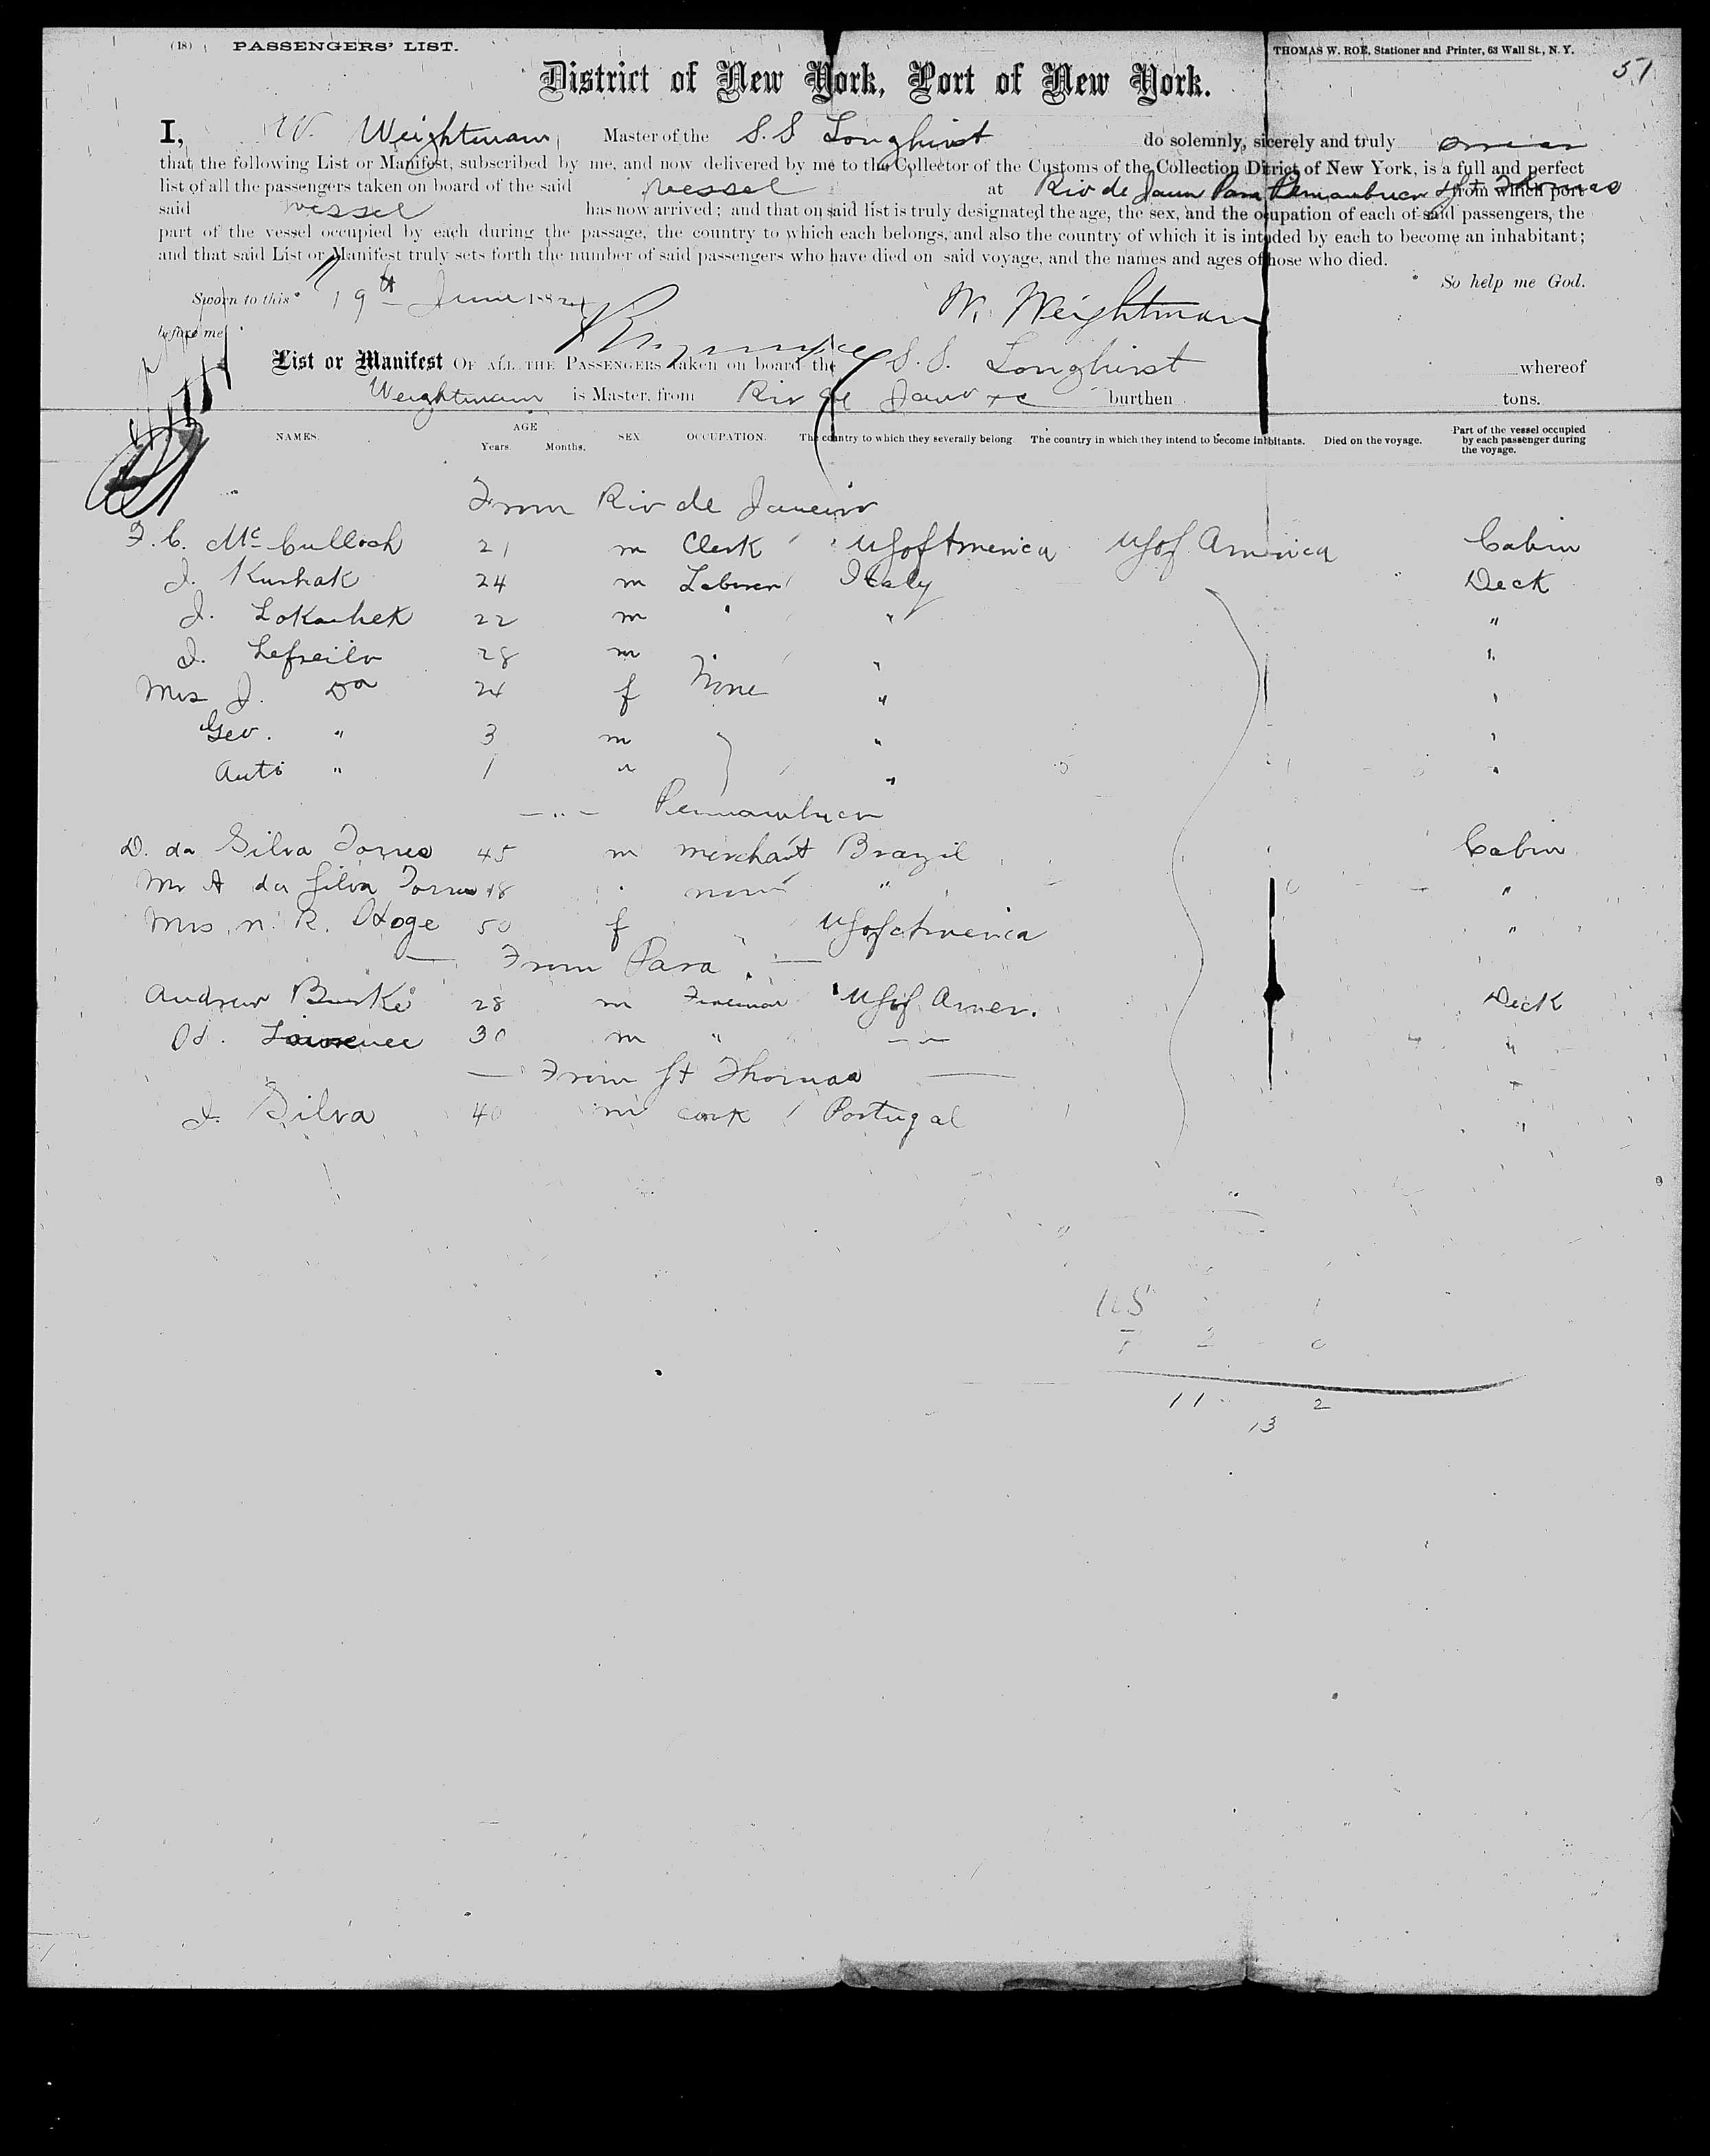 (18) PASSENGERS' LIST.
THOMAS W. ROE, Stationer and Printer, 63 Wall St., N. Y.
51
District of New York, Port of New York.
I, W. Weightman, Master of the S.S Longhirst do solemnly, sicerely and truly swear
that the following List or Manifest, subscribed by me, and now delivered by me to the Collector of the Customs of the Collection Ditrict of New York, is a full and perfect
list of all the passengers taken on board of the said vessel at Rio de Janro Para Pernambuco & St Thomas from which port
said vessel has now arrived; and that on said list is truly designated the age, the sex, and the ocupation of each of said passengers, the
part of the vessel occupied by each during the passage, the country to which each belongs, and also the country of which it is intnded by each to become an inhabitant;
and that said List or Manifest truly sets forth the number of said passengers who have died on said voyage, and the names and ages of hose who died.
So help me God.
Sworn to this 19th June 188
W. Weightman
before me
List or Manifest OF ALL THE PASSENGERS taken on board the S.S. Longhirst whereof
Weightman is Master, from Rio de Janro &c burthen tons.
NAMES. AGE Years. Months. SEX. OCCUPATION. The country to which they severally belong. The country in which they intend to become inhbitants. Died on the voyage. Part of the vessel occupied by each passenger during the voyage.
From Rio de Janeiro
F. C. McCulloch 21 m Clerk US of America US of America Cabin
J. Kushak 24 m Laborer Italy Deck
J. Lokashek 22 m " " "
J. Lefreilo 28 m " "
Mrs J. Do 24 f None " "
Geo. " 3 m " "
Anto " 1 " " "
— " — Pernambuco
D. da Silva Torres 45 m merchant Brazil Cabin
Mr A da Silva Torres 18 " none " "
Mrs N. R. Hoge 50 f " US of America "
— From Para. —
Andrew Burke 28 m Fireman US of Amer. Deck
H. Lawrence 30 m " — " — "
— From St Thomas —
J. Silva 40 m cook Portugal "
US 1
2 0
11 2
13